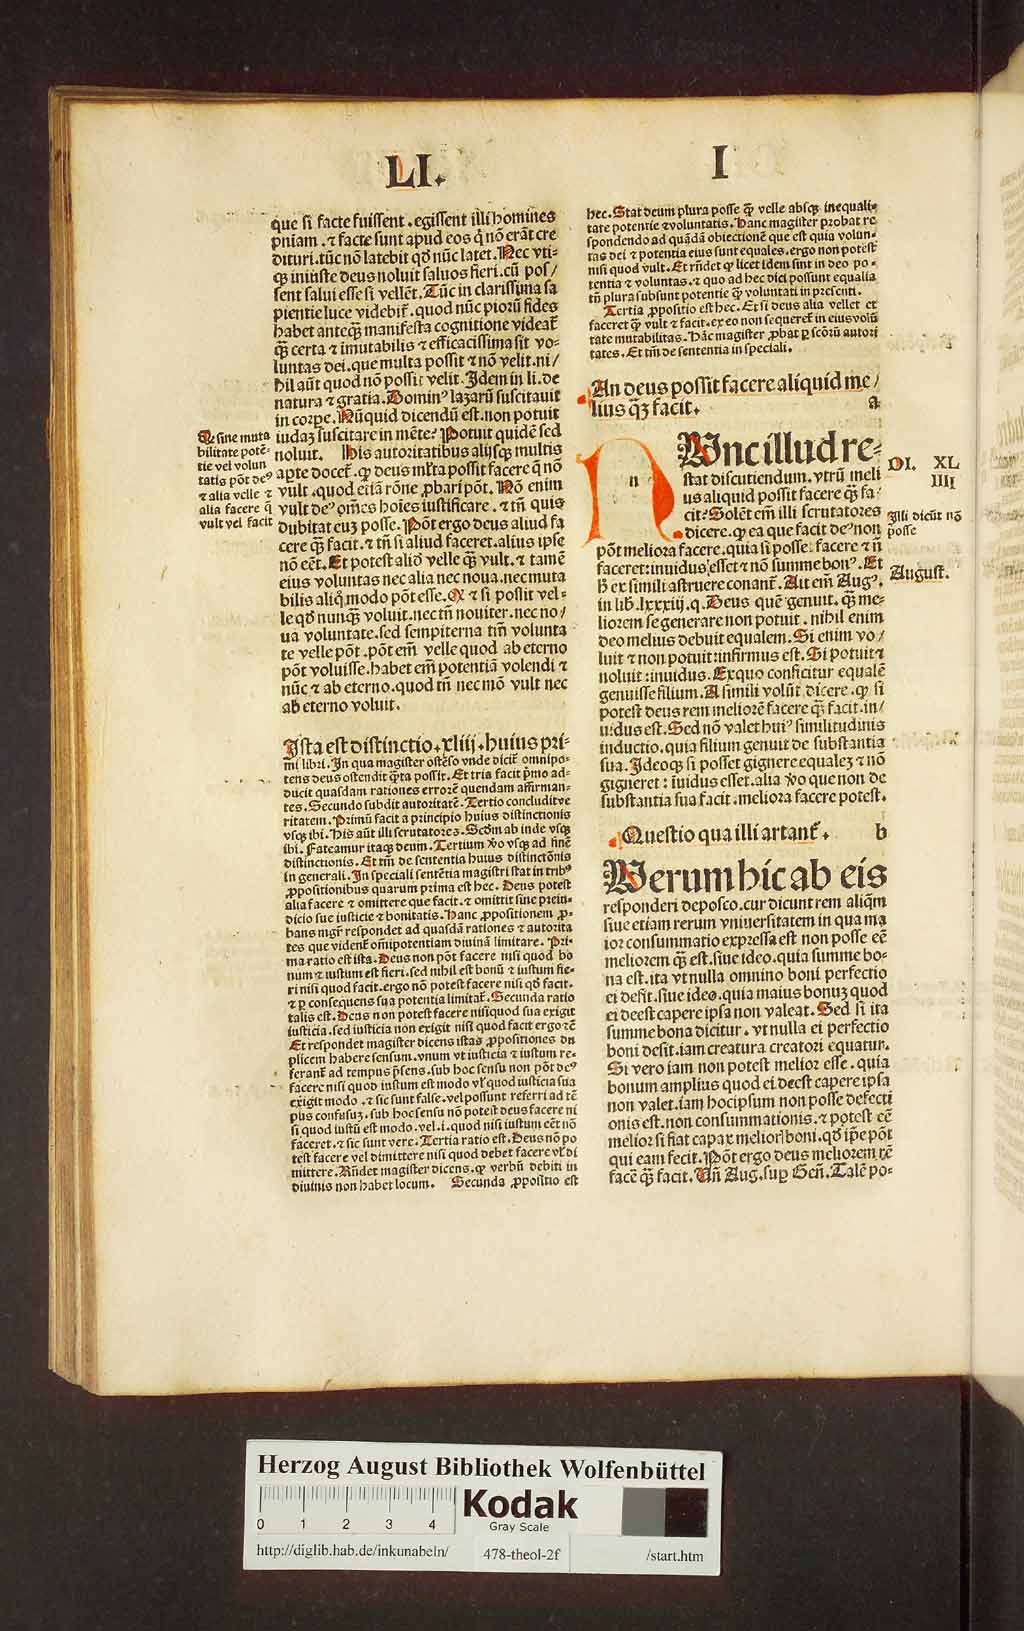 LI.
I
que si facte fuissent. egissent illi homines
pniam. ⁊ facte sunt apud eos q̄ nō erāt cre
dituri. tūc nō latebit qđ nūc latet. Nec vti⸗
q̢ iniuste deus noluit saluos fieri. cū pos/
sent salui esse si vellēt. Tūc in clarissima sa
pientie luce videbit̄. quod nūc piorū fides
habet anteq̄ʒ manifesta cognitione videat̄
q̄ʒ certa ⁊ imutabilis ⁊ efficacissima sit vo⸗
luntas dei. que multa possit ⁊ nō velit. ni/
hil aūt quod nō possit velit. Idem in li. de
natura ⁊ gratia. Dominꝰ lazarū suscitauit
in corpe. Nūquid dicendū est. non potuit
iudaʒ suscitare in mēte? Potuit quidē sed
noluit. His autoritatibus alijsq̢ multis
aꝑte docet̄. ꝙ deus ml̄ta possit facere q̄ nō
vult. quod etiā rōne ꝓbari pōt. Nō enim
vult deꝰ om̄es hoīes iustificare. ⁊ tn̄ quis
dubitat euʒ posse. Pōt ergo deus aliud fa
cere q̄ʒ facit. ⁊ tn̄ si aliud faceret. alius ipse
nō eēt. Et potest aliđ velle q̄ʒ vult. ⁊ tamē
eius voluntas nec alia nec noua. nec muta
bilis aliq̄ modo pōt esse. Q ⁊ si possit vel⸗
le qđ nunq̄ʒ voluit. nec tn̄ nouiter. nec no/
ua voluntate. sed sempiterna tm̄ volunta
te velle pōt. pōt em̄ velle quod ab eterno
pōt voluisse. habet em̄ potentiā volendi ⁊
nūc ⁊ ab eterno. quod tn̄ nec mō vult nec
ab eterno voluit.
Q sine muta
bilitate potē⸗
tie vel volun
tatis pōt deꝰ
⁊ alia velle ⁊
alia facere q̄
vult vel facit
Ista est distinctio. xliij. huius pri⸗
mi libri. In qua magister ostēso vnde dicit̄ omnipo⸗
tens deus ostendit q̄nta possit. Et tria facit p̄mo ad⸗
ducit quasdam rationes errorē quendam affirman⸗
tes. Secundo subdit autoritatē. Tertio concludit ve
ritatem. Primū facit a principio huius distinctionis
vsq̢ ibi. His aūt illi scrutatores. Scđm ab inde vsq̢
ibi. Fateamur itaq̢ deum. Tertium v̊o vsq̢ ad finē
distinctionis. Et tm̄ de sententia huius distinctōnis
in generali. In speciali sentētia magistri stat in tribꝰ
ꝓpositionibus quarum prima est hec. Deus potest
alia facere ⁊ omittere que facit. ⁊ omittit sine preiu⸗
dicio sue iusticie ⁊ bonitatis. Hanc ꝓpositionem ꝓ⸗
bans mgr̄ respondet ad quasdā rationes ⁊ autorita
tes que vident̄ om̄ipotentiam diuinā limitare. Pri⸗
ma ratio est ista. Deus non pōt facere nisi quod bo
num ⁊ iustum est fieri. sed nihil est bonū ⁊ iustum fie⸗
ri nisi quod facit. ergo nō potest facere nisi qđ facit.
⁊ ꝑ consequens sua potentia limitat̄. Secunda ratio
talis est. Deus non potest facere nisi quod sua exigit
iusticia. sed iusticia non exigit nisi quod facit ergo ⁊c̄
Et respondet magister dicens istas ꝓpositiones du
plicem habere sensum. vnum vt iusticia ⁊ iustum re⸗
ferant̄ ad tempus p̄sens. sub hoc sensu non pōt deꝰ
facere nisi quod iustum est modo vl̄ quod iusticia sua
exigit modo. ⁊ sic sunt false. vel possunt referri ad tē
pus confusuʒ. sub hoc sensu nō potest deus facere ni
si quod iustū est modo. vel. i. quod nisi iustum eēt nō
faceret. ⁊ sic sunt vere. Tertia ratio est. Deus nō po
test facere vel dimittere nisi quod debet facere vl̄ di
mittere. Rn̄det magister dicens. ꝙ verbū debiti in
diuinis non habet locum. Secunda ꝓpositio est
hec. Stat deum plura posse q̄ʒ velle absq̢ inequali⸗
tate potentie ⁊ voluntatis. Hanc magister probat re
spondendo ad quādā obiectionē que est quia volun⸗
tas dei ⁊ potentia eius sunt equales. ergo non potest
nisi quod vult. Et rn̄det ꝙ licet idem sint in deo po⸗
tentia ⁊ voluntas. ⁊ quo ad hec dici possunt equalia
tn̄ plura subsunt potentie q̄ʒ voluntati in presenti.
Tertia ꝓpositio est hec. Et si deus alia vellet et
faceret q̄ʒ vult ⁊ facit. ex eo non sequeret̄ in eius volū
tate mutabilitas. Hāc magister ꝓbat ꝑ scōrū autori
tates. Et tm̄ de sententia in speciali.
An deus possit facere aliquid me/
lius q̄ʒ facit. a
Nunc illud re⸗
n
stat discutiendum. vtrū meli
us aliquid possit facere q̄ʒ fa/
cit? Solēt em̄ illi scrutatores
dicere. ꝙ ea que facit deꝰ non
pōt meliora facere. quia si posset facere ⁊ n̄
faceret: inuidus esset ⁊ nō summe bonꝰ. Et
h̄ ex simili astruere conant̄. Ait em̄ Augꝰ.
in lib. lxxxiij. q. Deus quē genuit. q̄ʒ me⸗
liorem se generare non potuit. nihil enim
deo melius debuit equalem. Si enim vo/
luit ⁊ non potuit: infirmus est. Si potuit ⁊
noluit: inuidus. Ex quo conficitur equalē
genuisse filium. A simili volūt dicere. ꝙ si
potest deus rem meliorē facere q̄ʒ facit. in/
uidus est. Sed nō valet huiꝰ similitudinis
inductio. quia filium genuit de substantia
sua. Ideoq̢ si posset gignere equaleʒ ⁊ nō
gigneret: īuidus esset. alia v̊o que non de
substantia sua facit. meliora facere potest.
DI. XL
IIII
Illi dicūt nō
posse
August.
Questio qua illi artant̄. b
Uerum hic ab eis
responderi deposco. cur dicunt rem aliq̄m
siue etiam rerum vniuersitatem in qua ma
ior consummatio expressa est non posse eē
meliorem q̄ʒ est. siue ideo. quia summe bo⸗
na est. ita vt nulla omnino boni perfectio
ei desit. siue ideo. quia maius bonuʒ quod
ei deest capere ipsa non valeat. Sed si ita
summe bona dicitur. vt nulla ei perfectio
boni desit. iam creatura creatori equatur.
Si vero iam non potest melior esse. quia
bonum amplius quod ei deest capere ipsa
non valet. iam hoc ipsum non posse defecti
onis est. non consummationis. ⁊ potest eē
melior si fiat capax melior̄ boni. qđ ip̄e pōt
qui eam fecit. Pōt ergo deus meliorem rē
facē q̄ʒ facit. Un̄ Aug. suꝑ Gen̄. Talē po⸗
Herzog August Bibliothek Wolfenbüttel
0 1 2 3 4
Kodak
Gray Scale
http://diglib.hab.de/inkunabeln/ 478-theol-2f /start.htm